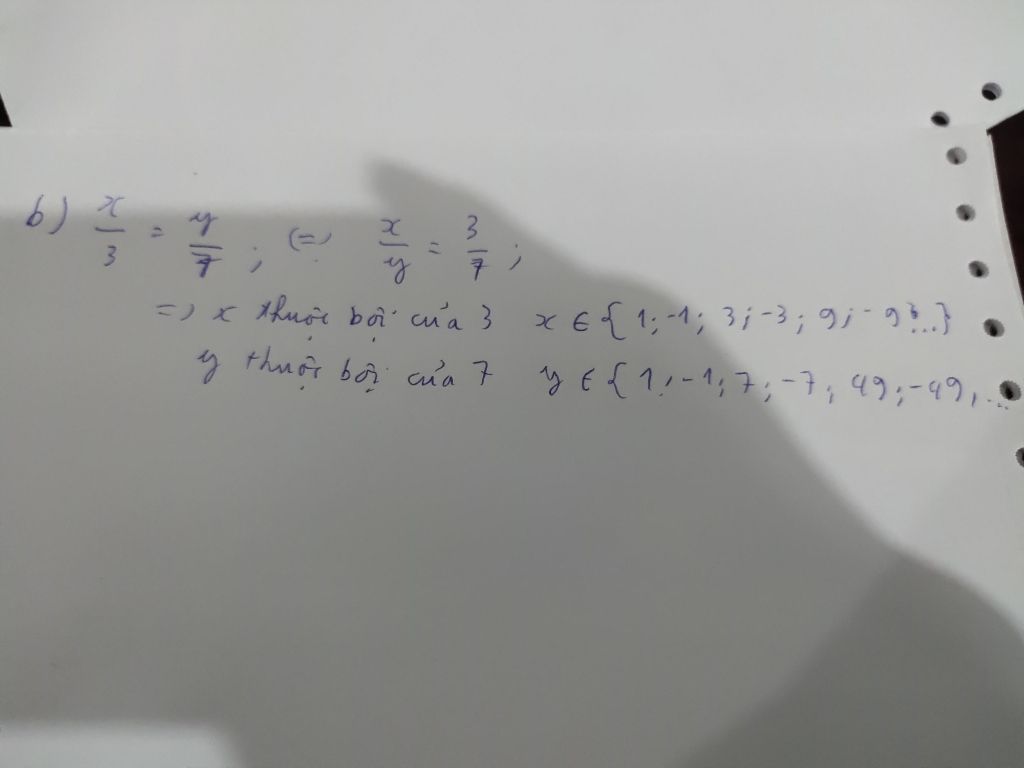 b) x/3 = y/7 ; (=) x/y = 3/7 ;
=) x thuộc bội của 3 x ∈ {1; -1; 3; -3; 9; -9; ...}
y thuộc bội của 7 y ∈ {1; -1; 7; -7; 49; -49, ...